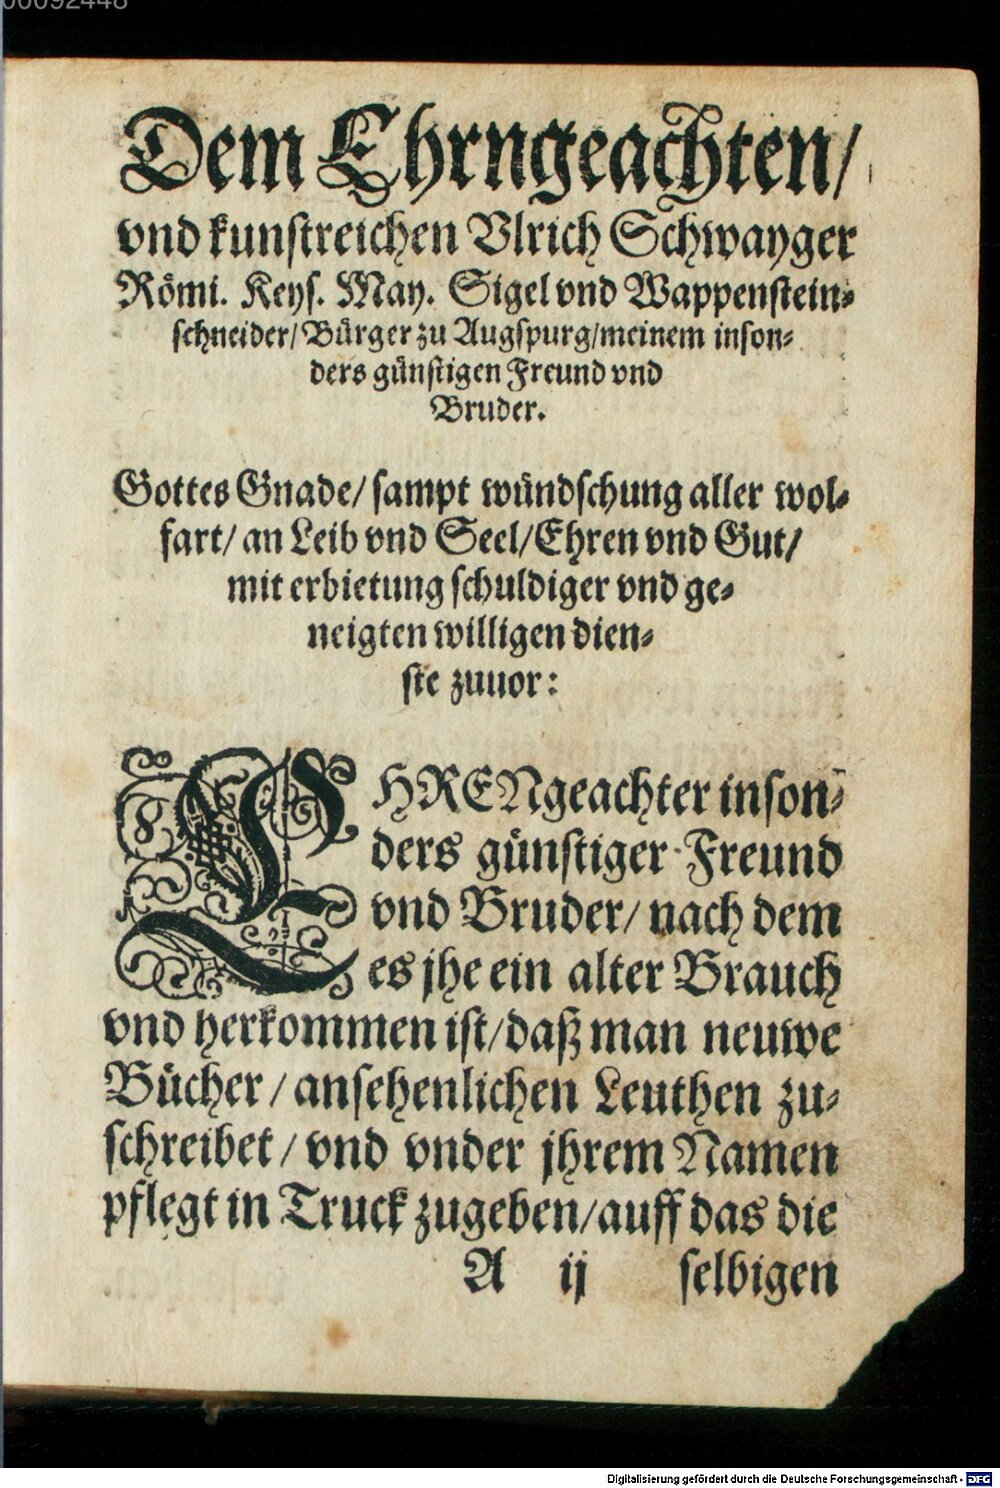 00092448
Dem Ehrngeachten/
vnd kunstreichen Vlrich Schwayger
Römi. Keys. May. Sigel vnd Wappenstein-
schneider/ Bürger zu Augspurg/ meinem inson-
ders günstigen Freund vnd
Bruder.
Gottes Gnade/ sampt wündschung aller wol-
fart/ an Leib vnd Seel/ Ehren vnd Gut/
mit erbietung schuldiger vnd ge-
neigten willigen dien-
ste zuuor:
EHRENgeachter inson-
ders günstiger Freund
vnd Bruder/ nach dem
es jhe ein alter Brauch
vnd herkommen ist/ daß man neuwe
Bücher/ ansehenlichen Leuthen zu-
schreibet/ vnd vnder jhrem Namen
pflegt in Truck zugeben/ auff das die
A ij selbigen
Digitalisierung gefördert durch die Deutsche Forschungsgemeinschaft - DFG